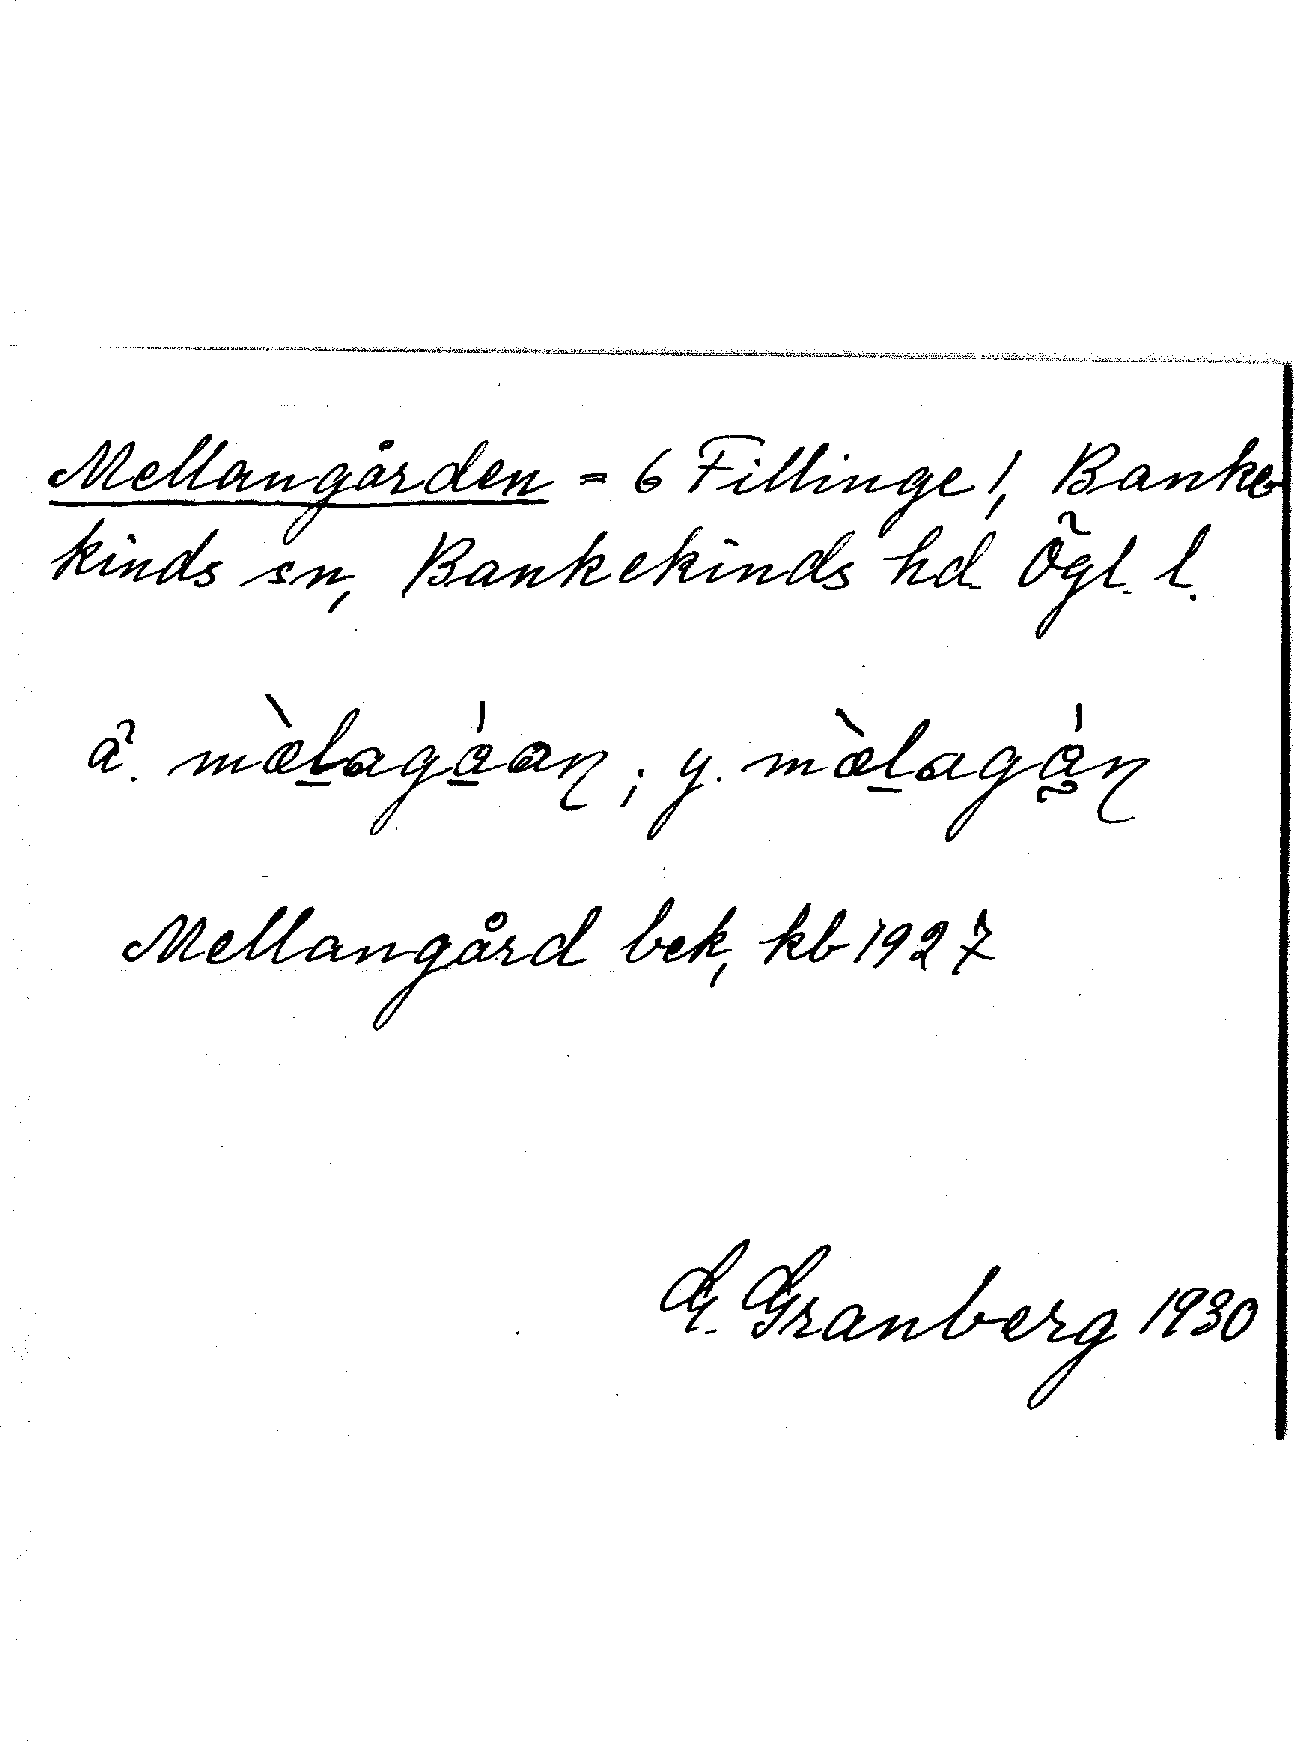 Mellangården = 6 Fillinge!, Banke-
kinds sn, Bankekinds hd Ögl. l.
ä. mæ̀lagáan; y. mæ̀lagán
Mellangård bek, kb 1927
G. Granberg 1930